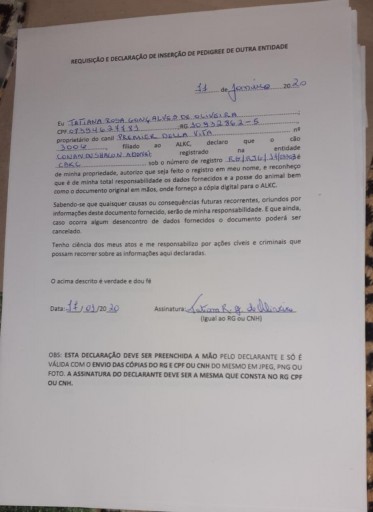 REQUISIÇÃO E DECLARAÇÃO DE INSERÇÃO DE PEDIGREE DE OUTRA ENTIDADE
11 de Janeiro 2020
Eu TATIANA ROSA GONÇALVES DE OLIVEIRA
CPF RG
proprietário do canil PREMIER DELLA VITA, nº
3004, filiado ao ALKC, declaro que o cão
registrado na entidade
CBKC, sob o número de registro
de minha propriedade, autorizo que seja feito o registro em meu nome, e reconheço
que é de minha total responsabilidade os dados fornecidos e a posse do animal bem
como o documento original em mãos, onde forneço a cópia digital para o ALKC.
Sabendo-se que quaisquer causas ou consequências futuras recorrentes, oriundos por
informações deste documento fornecido, serão de minha responsabilidade. E que ainda,
caso ocorra algum desencontro de dados fornecidos o documento poderá ser
cancelado.
Tenho ciência dos meus atos e me responsabilizo por ações cíveis e criminais que
possam recorrer sobre as informações aqui declaradas.
O acima descrito é verdade e dou fé
Data: 11/01/2020 Assinatura: Tatiana R. G. de Oliveira
(Igual ao RG ou CNH)
OBS: ESTA DECLARAÇÃO DEVE SER PREENCHIDA A MÃO PELO DECLARANTE E SÓ É
VÁLIDA COM O ENVIO DAS CÓPIAS DO RG E CPF OU CNH DO MESMO EM JPEG, PNG OU
FOTO. A ASSINATURA DO DECLARANTE DEVE SER A MESMA QUE CONSTA NO RG CPF
OU CNH.